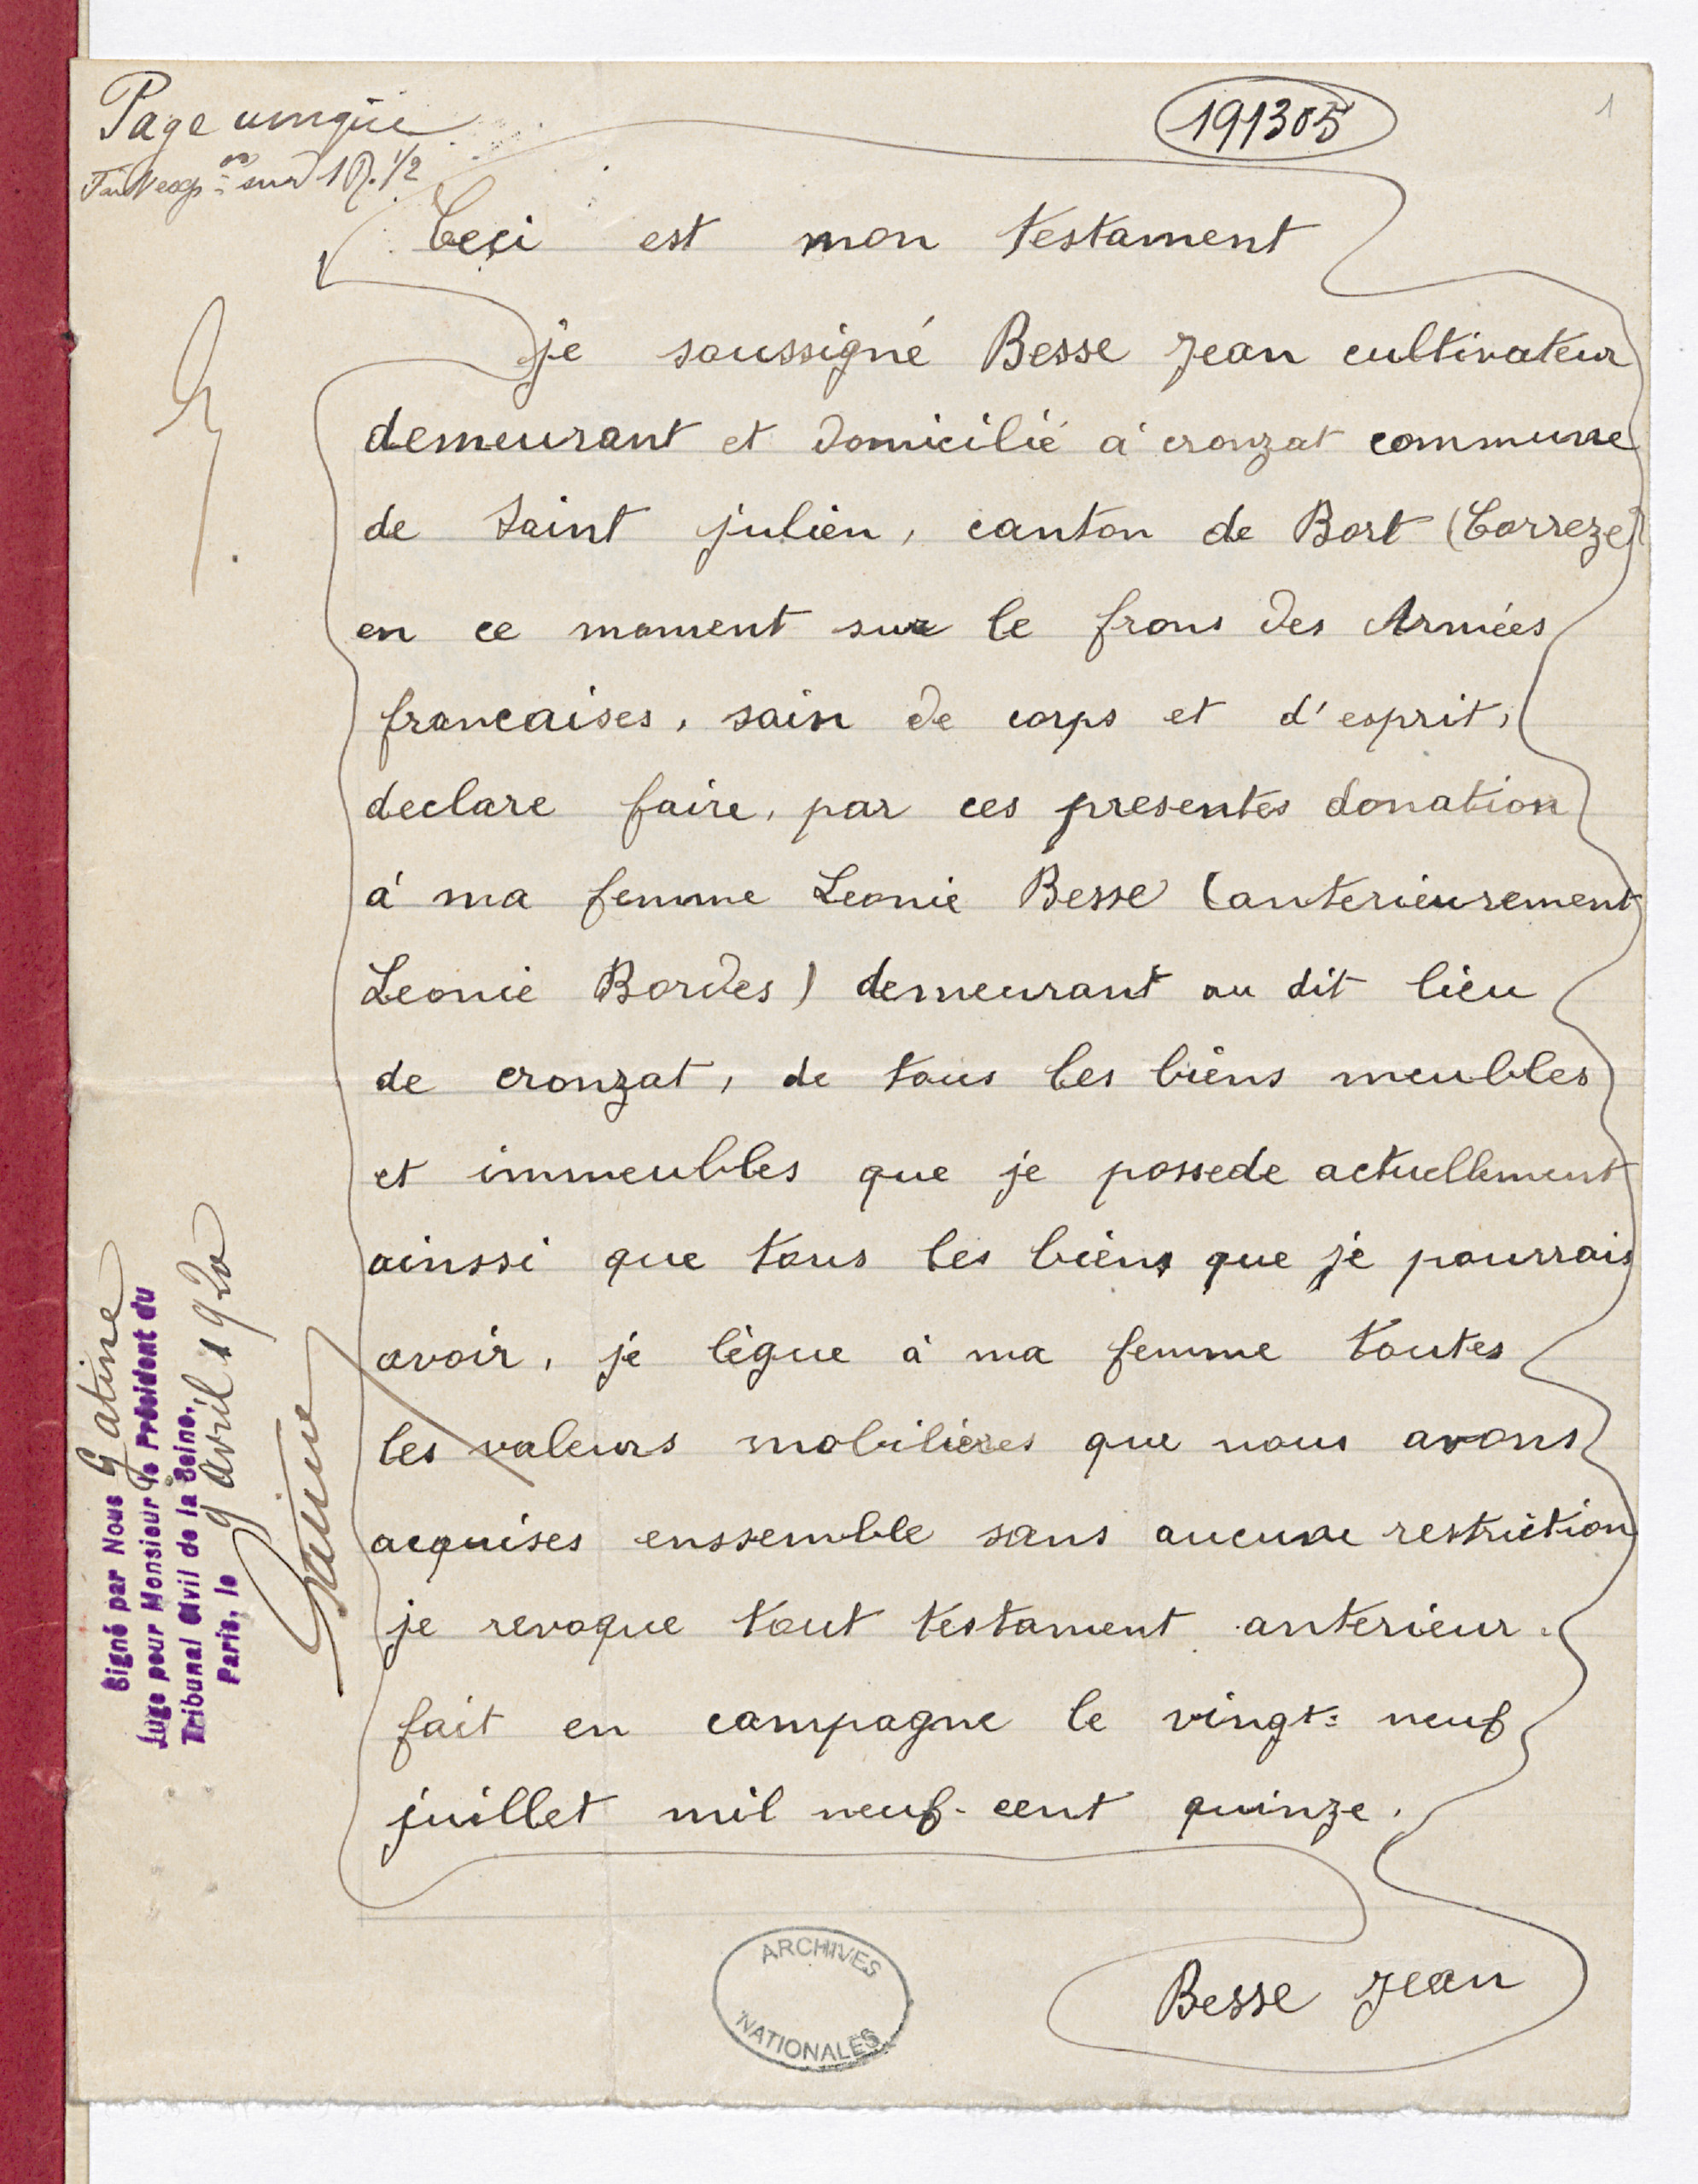 Page unique
sur 1 R. 1/2
191305
1
Ceci est mon testament
je soussigné Besse Jean cultivateur
demeurant et domicilié à cronzat commune
de Saint julien, canton de Bort (Correze)
en ce moment sur le frons des Armées
francaises, sain de corps et d'esprit,
declare faire, par ces presentes donation
à ma femme Leonie Besse (anterieurement
Leonie Bordes) demeurant au dit lieu
de cronzat, de tous les biens meubles
et immeubles que je possede actuellement
ainssi que tous les biens que je pourrais
avoir, je lègue à ma femme toutes
les valeurs mobilières que nous avons
acquises enssemble sans aucune restriction
je revoque tout testament anterieur.
fait en campagne le vingt-neuf
juillet mil neuf-cent quinze.
Besse Jean
Signé par Nous Gatine
Juge pour Monsieur le Président du
Tribunal Civil de la Seine.
Paris, le 9 avril 1920
Gatine
ARCHIVES
NATIONALES